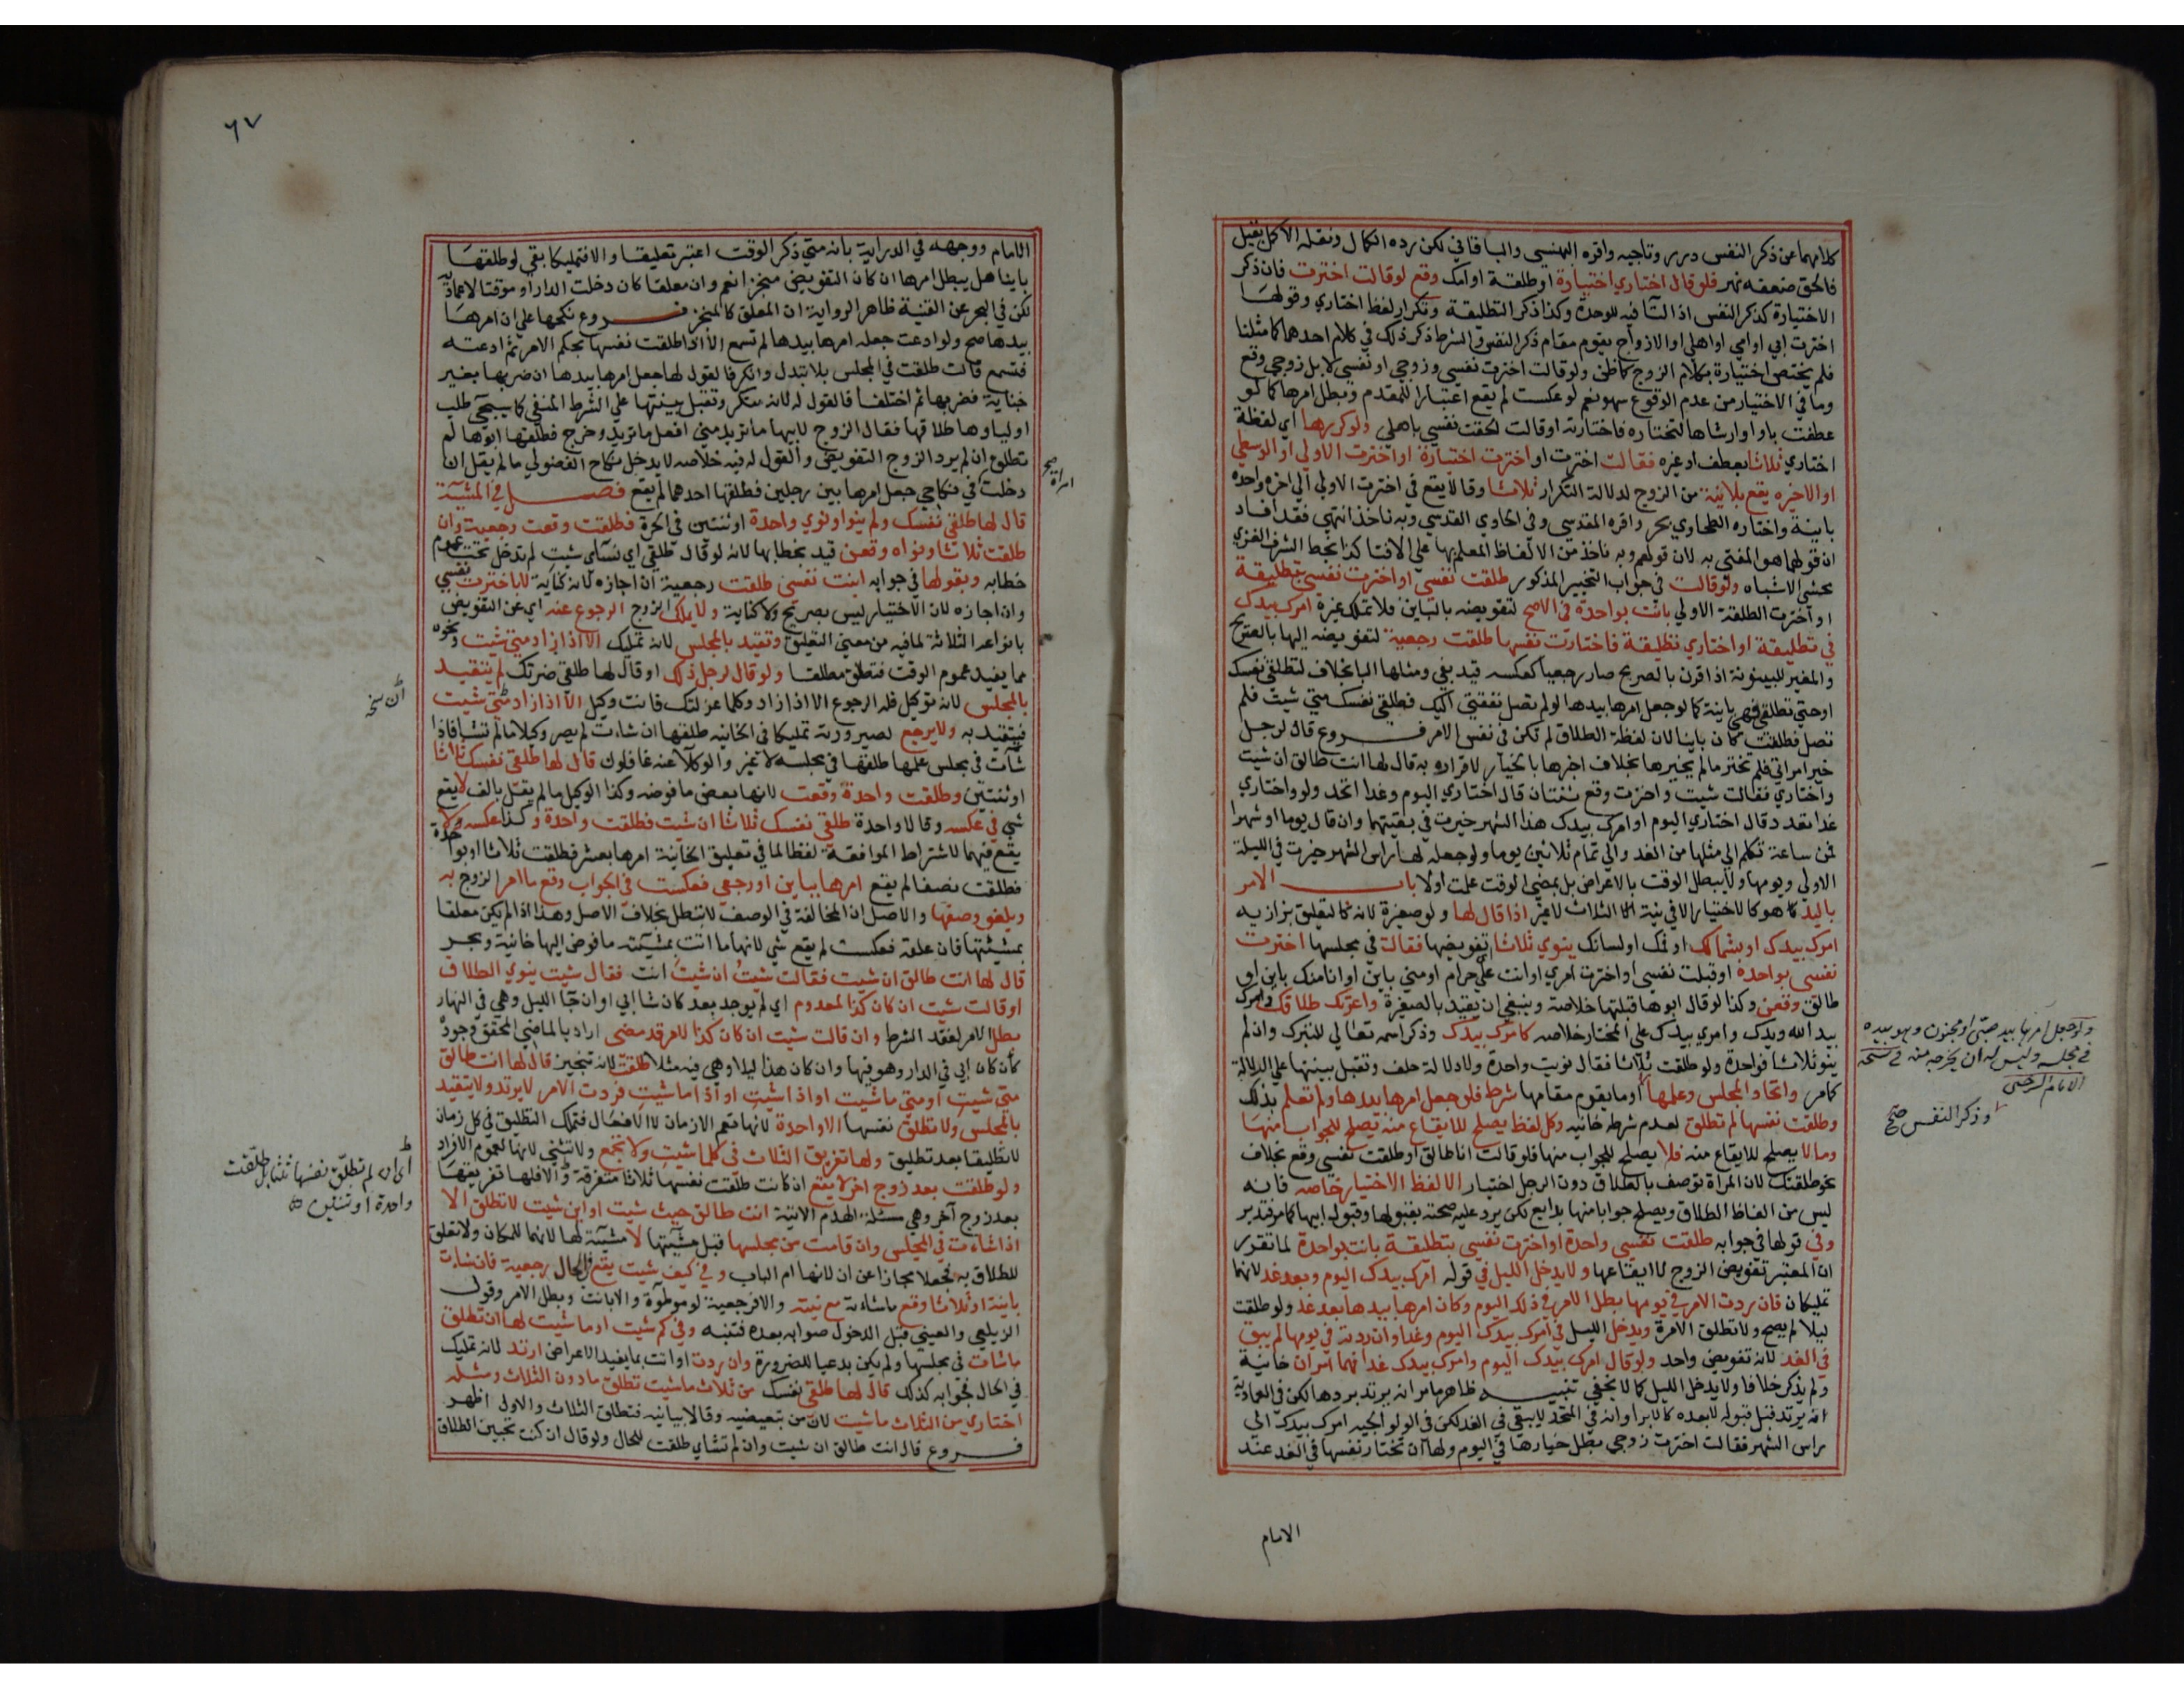 كلامهما عن ذكر النفس درر وتاجيه واقره البهنسي والباقاني لكن رده الكمال ونقله الاكمل بقيل
فالحق ضعفه نهر فلو قال اختاري اختيارة او طلقة او امك وقع لو قالت اخترت فان ذكر
الاختيارة كذكر النفس اذ التآ فيه للوحدة وكذا ذكر التطليقة وتكرار لفظ اختاري وقولها
اخترت ابي او امي او اهلي او الازواج يقوم مقام ذكر النفس والشرط ذكر ذلك في كلام احدهما كما مثلنا
فلم يختص اختيارة بكلام الزوج كما ظن ولو قالت اخترت نفسي وزوجي او نفسي لا بل زوجي وقع
وما في الاختيار من عدم الوقوع سهو نعم لو عكست لم يقع اعتبارا للمقدم وبطل امرها كما لو
عطفت باو او ارشاها لتختاره فاختارته او قالت الحقت نفسي باهلي ولو كررها اي لفظة
اختاري ثلاثا بعطف او غيره فقالت اخترت او اخترت اختيارة او اخترت الاولي او الوسطي
او الاخيره يقع بلا نية من الزوج لدلالة التكرار ثلاثا وقالا يقع في اخترت الاولي الي اخره واحده
باينة واختاره الطحاوي بحر واقره المقدسي وفي الحاوي القدسي وبه ناخذ انتهي فقد افاد
ان قولهما هو المفتي به لان قولهم وبه ناخذ من الالفاظ المعلم بها علي الافتا كذا بخط الشرف الغزي
محشي الاشباه ولو قالت في جواب التخيير المذكور طلقت نفسي او اخترت نفسي بتطليقة
او اخترت الطلقة الاولي بانت بواحدة في الاصح لتفويضه بالباين فلا تملك غيره امرك بيدك
في تطليقة او اختاري تطليقة فاختارت نفسها طلقت رجعية لتفويضه اليها بالصريح
والمفيد للبينونة اذا قرن بالصريح صار رجعيا كعكسه قيد بفي ومثلها البا بخلاف لتطلقي نفسك
او حتي تطلقي فهي باينة كما لو جعل امرها بيدها لو لم تصل نفقتي اليك فطلقي نفسك متي شيت فلم
تصل فطلقت كان باينا لان لفظة الطلاق لم تكن في نفس الامر فروع قال لرجل
خير امراتي فلم تختر ما لم يخيرها بخلاف اخبرها بالخيار لاقراره به قال لها انت طالق ان شيت
واختاري فقالت شيت واخترت وقع ثنتان قال اختاري اليوم وغدا اتحد ولو واختاري
غدا تعدد قال اختاري اليوم او امرك بيدك هذا الشهر خيرت في بقيتهما وان قال يوما او شهرا
فمن ساعة تكلم الي مثلها من الغد والي تمام ثلاثين يوما ولو جعله لها راس الشهر خيرت في الليلة
الاولي ويومها ولا يبطل الوقت بالاعراض بل بمضي الوقت علمت اولا باب الامر
باليد هو كالاختيار الا في نية الثلاث لا غير اذا قال لها ولو صغيرة لانه كالتعليق بزازيه
امرك بيدك او بشمالك او فمك او لسانك ينوي ثلاثا تفويضها فقالت في مجلسها اخترت
نفسي بواحدة او قبلت نفسي او اخترت امري او انت علي حرام او مني باين او انا منك باين او
طالق وقعن وكذا لو قال ابوها قبلتها خلاصة وينبغي ان يقيد بالصغيرة واعرتك طلاقك وامرك
بيد الله ويدك وامري بيدك علي المختار خلاصه كامرك بيدك وذكر اسمه تعالي للتبرك وان لم
ينو ثلاثا فواحدة ولو طلقت ثلاثا فقال نويت واحدة ولا دلالة حلف وتقبل بينتها علي الدلالة
كما مر واتحاد المجلس وعلمها او ما يقوم مقامها شرط فلو جعل امرها بيدها ولم تعلم بذلك
وطلقت نفسها لم تطلق لعدم شرطه خانيه وكل لفظ يصلح للايقاع منه يصلح للجواب منها
وما لا يصلح للايقاع منه فلا يصلح للجواب منها فلو قالت انا طالق او طلقت نفسي وقع بخلاف
نحو طلقتك لان المراة توصف بالطلاق دون الرجل اختيار الا لفظ الاختيار خاصه فانه
ليس من الفاظ الطلاق ويصلح جوابا منها بدايع لكن يرد عليه صحته بقبولها وقبول ابيها كما مر فتدبر
وفي قولها في جوابه طلقت نفسي واحدة او اخترت نفسي بتطليقة بانت بواحدة لما تقرر
ان المعتبر تفويض الزوج لا ايقاعها ولا يدخل الليل في قوله امرك بيدك اليوم وبعد غد لانهما
تمليكان فان ردت الامر في يومها بطل الامر في ذلك اليوم وكان امرها بيدها بعد غد ولو طلقت
ليلا لم يصح ولا تطلق الا مرة ويدخل الليل في امرك بيدك اليوم وغدا وان ردته في يومها لم يبق
في الغد لانه تفويض واحد ولو قال امرك بيدك اليوم وامرك بيدك غدا فهما امران خانية
ولم يذكر خلافا ولا يدخل الليل كما لا يخفي تنبيه ظاهر ما مر انه يرتد بردها لكن في العمادية
انه يرتد قبل قبوله لا بعده كالابرا وانه في المتحد لا يبقي في الغد لكن في الولوالجيه امرك بيدك الي
راس الشهر فقالت اخترت زوجي بطل خيارها في اليوم ولها ان تختار نفسها في الغد عند
ولو جعل امرها بيد صبي او مجنون وهو بيده
في مجلسه وليس له ان يخرجه منه في نسخة
الامام السرخسي
وذكر النفس صح
الامام
٦٧
الامام ووجهه في الدراية بانه متي ذكر الوقت اعتبر تعليقا والا فتمليكا بقي لو طلقها
باينا هل يبطل امرها ان كان التفويض منجزا نعم وان معلقا كان دخلت الدار او موقتا لا عماديه
لكن في البحر عن القنية ظاهر الرواية ان المعلق كالمنجز فروع نكحها علي ان امرها
بيدها صح ولو ادعت جعله امرها بيدها لم تسمع الا اذا طلقت نفسها بحكم الامر ثم ادعته
فتسمع قالت طلقت في المجلس بلا تبدل وانكر فالقول لها جعل امرها بيدها ان ضربها بغير
جناية فضربها ثم اختلفا فالقول له لانه منكر وتقبل بينتها علي الشرط المنفي كما سيجي طلب
اولياوها طلاقها فقال الزوج لابيها ما تريد مني افعل ما تريد وخرج فطلقها ابوها لم
تطلق ان لم يرد الزوج التفويض والقول له فيه خلاصه لا يدخل نكاح الفضولي ما لم يقل ان
دخلت في نكاحي جعل امرها بين رجلين فطلقها احدهما لم يقع فصل في المشيئة
قال لها طلقي نفسك ولم ينو او نوي واحدة او ثنتين في الحرة فطلقت وقعت رجعية وان
طلقت ثلاثا ونواه وقعن قيد بخطابها لانه لو قال طلقي اي نسآي شيت لم تدخل تحت عموم
خطابه وبقولها في جوابه ابنت نفسي طلقت رجعية ان اجازه لانه كناية لا باخترت نفسي
وان اجازه لان الاختيار ليس بصريح ولا كناية ولا يملك الزوج الرجوع عنه اي عن التفويض
بانواعه الثلاثة لما فيه من معني التعليق وتقيد بالمجلس لانه تمليك الا اذا زاد متي شيت ونحوه
مما يفيد عموم الوقت فتطلق مطلقا ولو قال لرجل ذلك او قال لها طلقي ضرتك لم يتقيد
بالمجلس لانه توكيل فله الرجوع الا اذا زاد وكلما عزلتك فانت وكيل الا اذا زاد متي شيت
فيتقيد به ولا يرجع لصيرورته تمليكا في الخانيه طلقها ان شاءت لم يصر وكيلا ما لم تشا فاذا
شآت في مجلس علمها طلقها في مجلسه لا غير والوكلآ عنه غافلون قال لها طلقي نفسك ثلاثا
او ثنتين وطلقت واحدة وقعت لانها بعض ما فوضه وكذا الوكيل ما لم يقل بالف لا يقع
شي في عكسه وقالا واحدة طلقي نفسك ثلاثا ان شيت فطلقت واحدة وكذا عكسه ولا
يقع فيهما لاشتراط الموافقة لفظا لما في تعليق الخانية امرها بعشر فطلقت ثلاثا او بواحدة
فطلقت نصفا لم يقع امرها بباين او رجعي فعكست في الجواب وقع ما امر الزوج به
ويلغو وصفها والاصل ان المخالفة في الوصف لا تبطل بخلاف الاصل وهذا اذا لم يكن معلقا
بمشيئتها فان علقه فعكست لم يقع شي لانها ما اتت بمشيئته ما فوض اليها خانية وبحر
قال لها انت طالق ان شيت فقالت شيت ان شيت انت فقال شيت ينوي الطلاق
او قالت شيت ان كان كذا لمعدوم اي لم يوجد بعد كان شا ابي او ان جآ الليل وهي في النهار
بطل الامر لفقد الشرط وان قالت شيت ان كان كذا لامر قد مضي اراد بالماضي المحقق وجوده
كان كان ابي في الدار وهو فيها وان كان هذا ليلا وهي فيه مثلا طلقت لانه تنجيز قال لها انت طالق
متي شيت او متي ما شيت او اذا شيت او اذا ما شيت فردت الامر لا يرتد ولا يتقيد
بالمجلس ولا تطلق نفسها الا واحدة لانها تعم الازمان لا الافعال فتملك التطليق في كل زمان
لا تطليقا بعد تطليق ولها تفريق الثلاث في كلما شيت ولا تجمع ولا تثني لانها لعموم الافراد
ولو طلقت بعد زوج اخر لا يقع ان كانت طلقت نفسها ثلاثا متفرقة والا فلها تفريقها
بعد زوج آخر وهي مسئلة الهدم الاتية انت طالق حيث شيت او اين شيت لا تطلق الا
اذا شاءت في المجلس وان قامت من مجلسها قبل مشيئتها لا مشيئة لها لانهما للمكان ولا تعلق
للطلاق به فجعلا مجازا عن ان لانها ام الباب وفي كيف شيت يقع في الحال رجعية فان شاءت
باينة او ثلاثا وقع ما شاءته مع نيته والا فرجعية لو موطوة والا بانت وبطل الامر وقول
الزيلعي والعيني قبل الدخول صوابه بعده فتنبه وفي كم شيت او ما شيت لها ان تطلق
ما شات في مجلسها ولم يكن بدعيا للضرورة وان ردت او اتت بما يفيد الاعراض ارتد لانه تمليك
في الحال فجوابه كذلك قال لها طلقي نفسك من ثلاث ما شيت تطلق ما دون الثلاث ومثله
اختاري من الثلاث ما شيت لان من تبعيضيه وقالا بيانيه فتطلق الثلاث والاول اظهر
فروع قال انت طالق ان شيت وان لم تشاي طلقت للحال ولو قال ان كنت تحبين الطلاق
امراة صح
ان نسخه
اي ان لم تطلق نفسها ثلاثا بل طلقت
واحدة او ثنتين